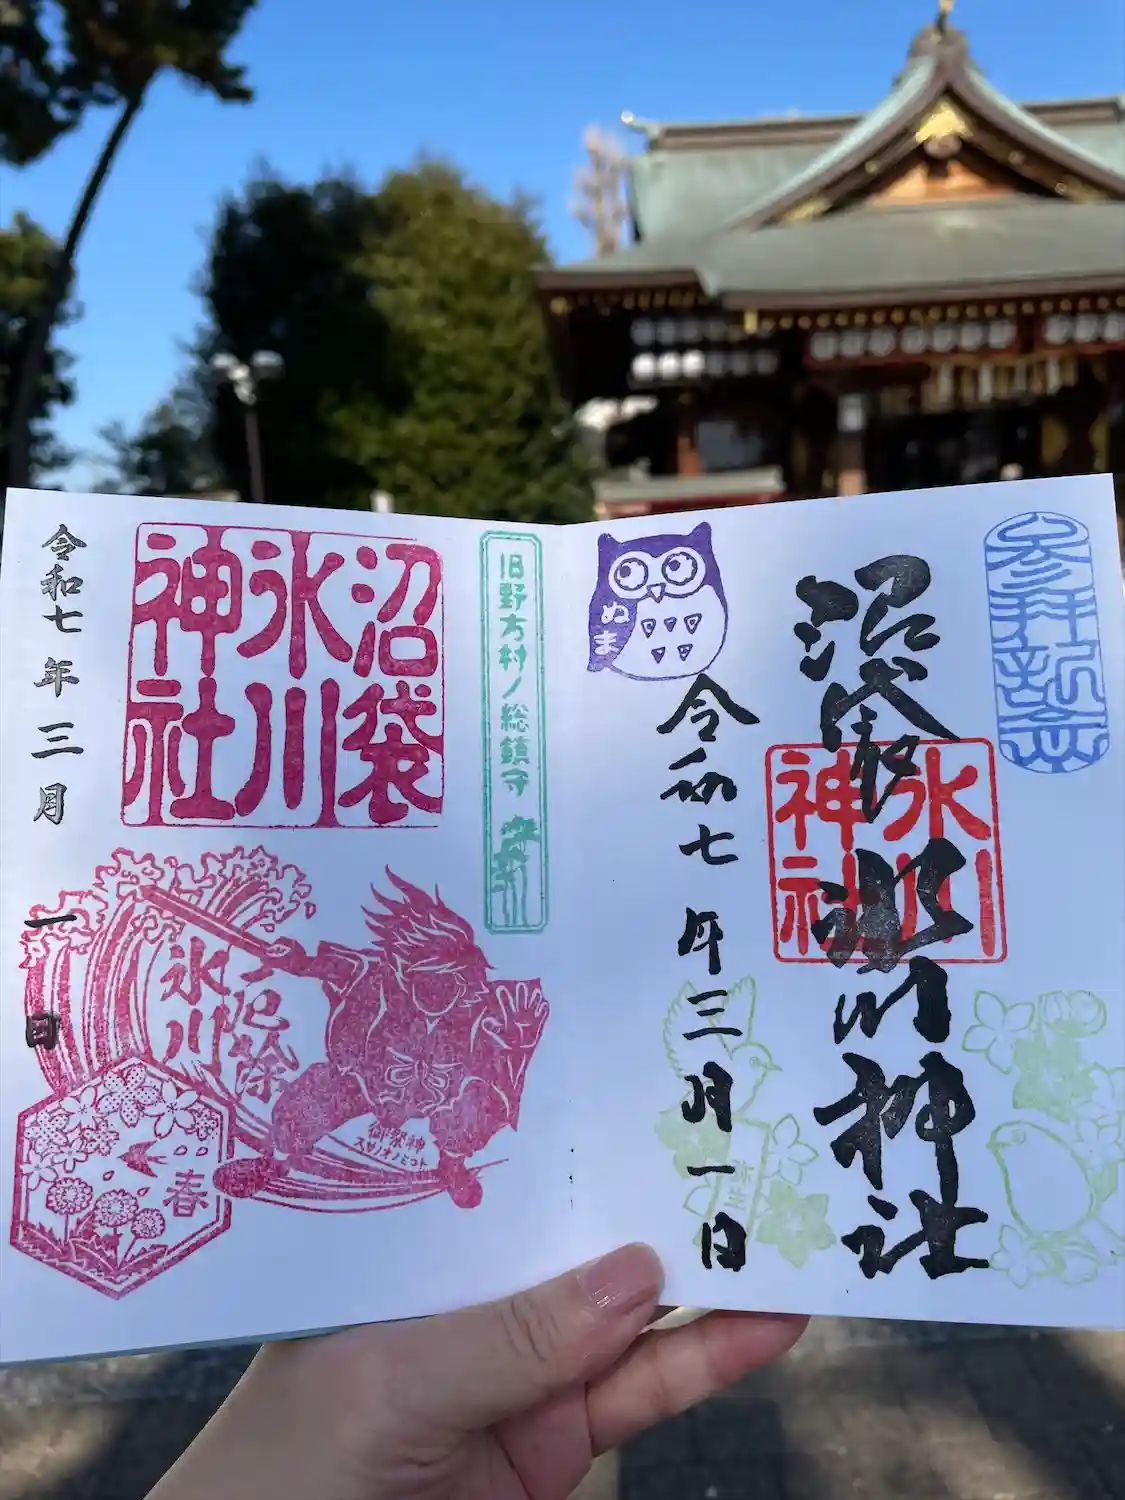 参拝記念
沼袋
氷川神社
氷川
神社
令和七年三月一日
ぬま
弥生
旧野方村ノ総鎮守
沼袋
氷川
神社
令和七年三月一日
厄除
氷川
御祭神
スサノオノミコト
春